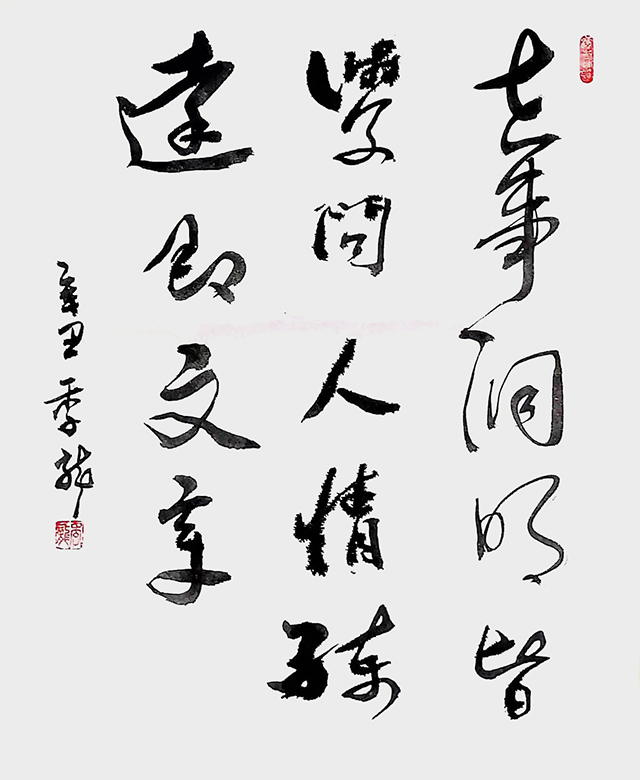 世事洞明皆
學問人情練
達即文章
辛丑季龍